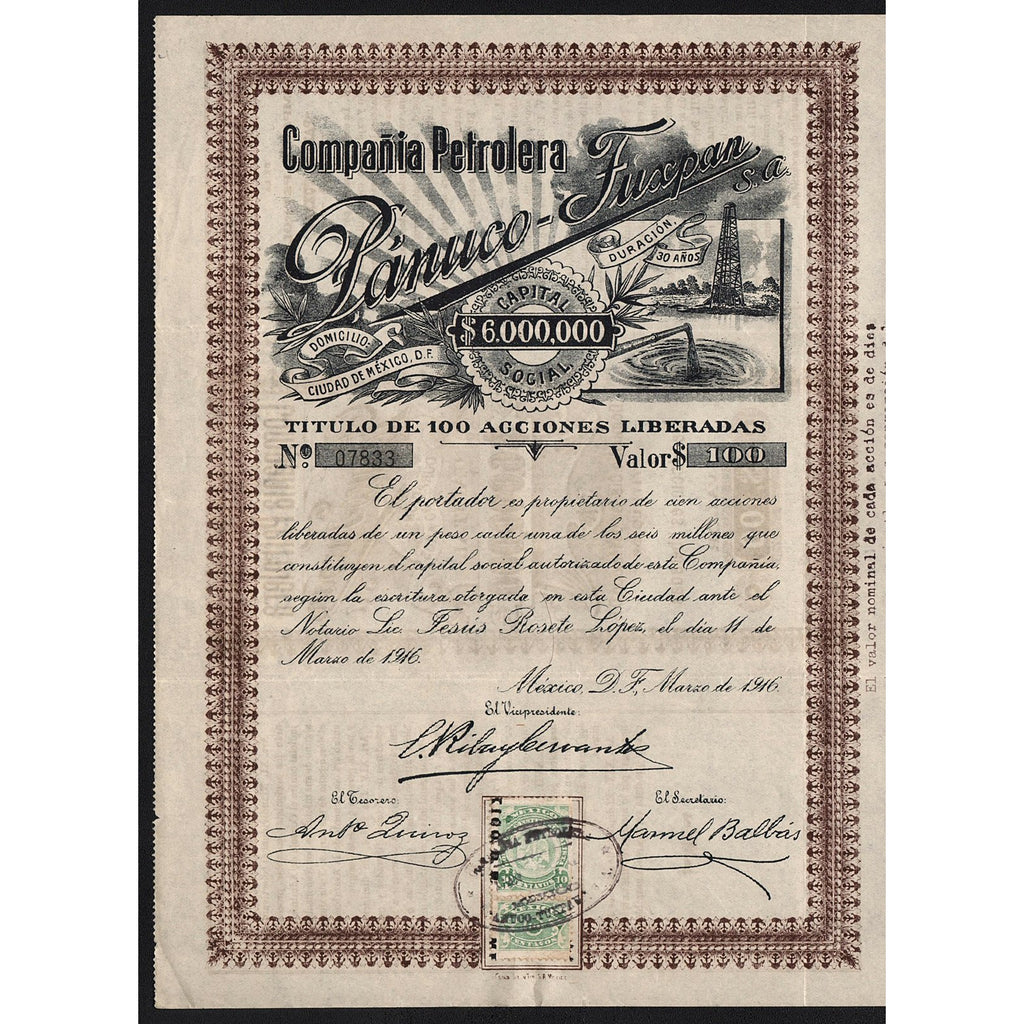 Compañia Petrolera
Pánuco-Tuxpan, S.A.
DURACIÓN,
30 AÑOS
CAPITAL
$ 6.000,000
SOCIAL
DOMICILIO:
CIUDAD DE MÉXICO, D.F.
TITULO DE 100 ACCIONES LIBERADAS
Nº 07833 Valor $ 100
El portador es propietario de cien acciones
liberadas de un peso cada una de los seis millones que
constituyen el capital social autorizado de esta Compañía,
según la escritura otorgada en esta Ciudad ante el
Notario Lic. Jesús Rosete López, el día 11 de
Marzo de 1916.
México, D. F., Marzo de 1916.
El Vicepresidente:
El Tesorero:
Antº Quiroz
El Secretario:
Manuel Balbás
MEXICO
CENTAVOS 10
El valor nominal de cada acción es de diez